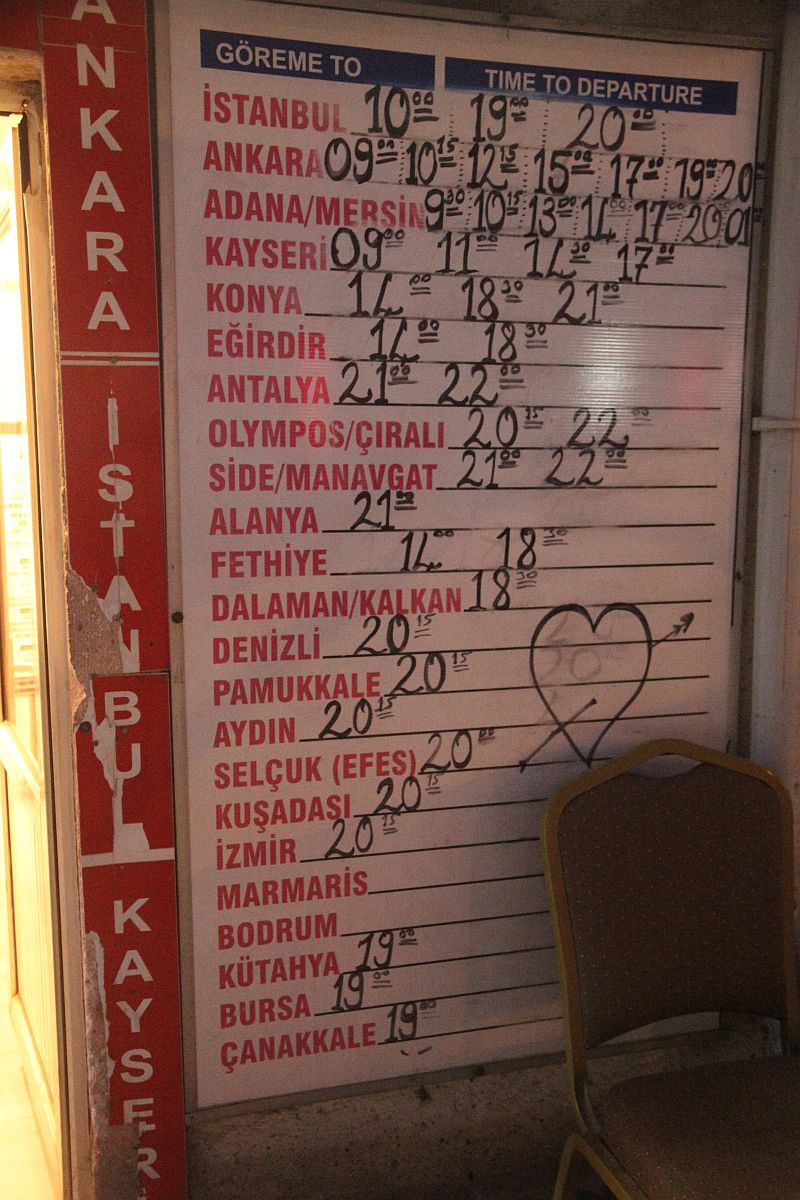 ANKARA
İSTANBUL
KAYSER
GÖREME TO TIME TO DEPARTURE
İSTANBUL 10⁰⁰ 19⁰⁰ 20⁰⁰
ANKARA 09⁰⁰ 10¹⁵ 12¹⁵ 15⁰⁰ 17⁰⁰ 19⁰⁰ 20
ADANA/MERSİN 9³⁰ 10¹⁵ 13⁰⁰ 14⁰⁰ 17⁰⁰ 20⁰⁰ 01
KAYSERİ 09⁰⁰ 11⁰⁰ 14³⁰ 17⁰⁰
KONYA 14⁰⁰ 18³⁰ 21⁰⁰
EĞİRDİR 14⁰⁰ 18³⁰
ANTALYA 21⁰⁰ 22⁰⁰
OLYMPOS/ÇIRALI 20¹⁵ 22⁰⁰
SİDE/MANAVGAT 21⁰⁰ 22⁰⁰
ALANYA 21⁰⁰
FETHİYE 14⁰⁰ 18³⁰
DALAMAN/KALKAN 18³⁰
DENİZLİ 20¹⁵
PAMUKKALE 20¹⁵
AYDIN 20¹⁵
SELÇUK (EFES) 20⁰⁰
KUŞADASI 20¹⁵
İZMİR 20¹⁵
MARMARİS
BODRUM
KÜTAHYA 19⁰⁰
BURSA 19⁰⁰
ÇANAKKALE 19⁰⁰